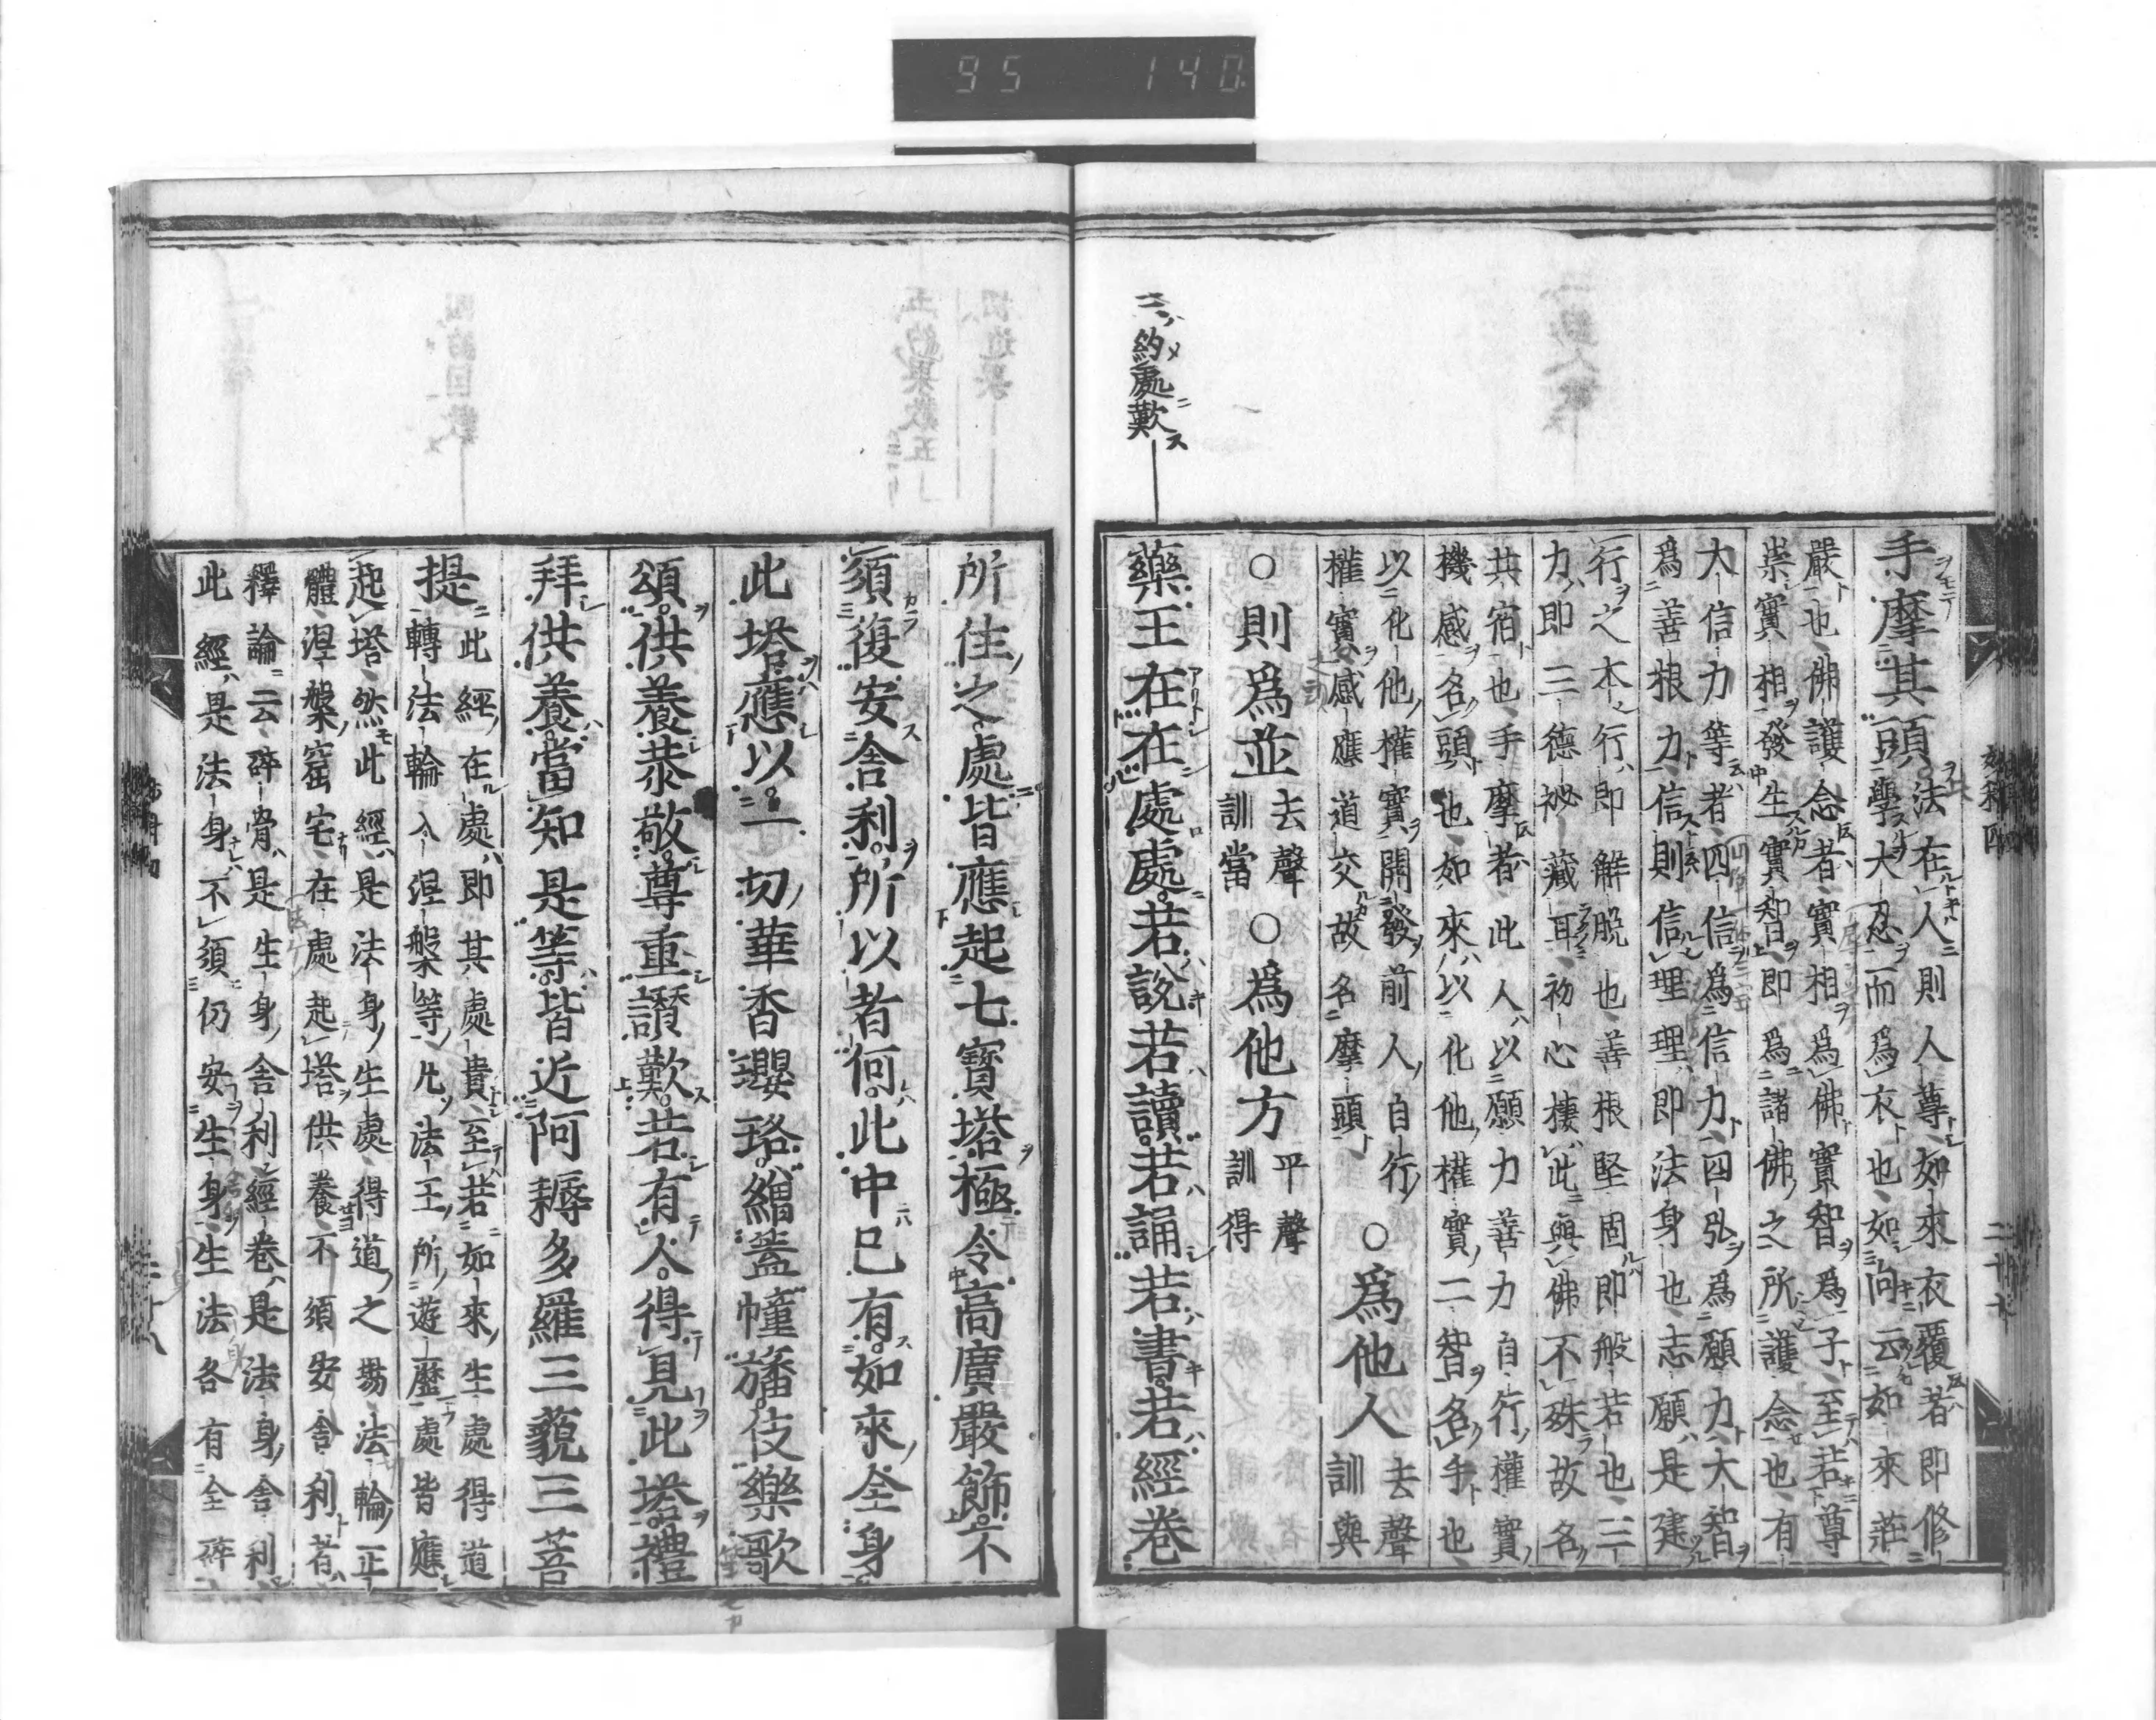 95 140
二約處歎
手摩其頭
法在人則人尊如來衣覆者即修
學大忍而爲衣也如向云如來莊
嚴也佛護念者實相爲佛實智爲子至若尊
崇實相發生實智即爲諸佛之所護念也有
大信力等者四信爲信力四弘爲願力大智
爲善根力信則信理理即法身也志願是建
行之本行即解脫也善根堅固即般若也三
力即三德祕藏耳初心棲此與佛不殊故名
共宿也手摩者此人以願力善力自行權實
機感名頭也如來以化他權實二智名手也
以化他權實開發前人自行
權實感應道交故名摩頭
○爲他人
去聲
訓與
○則爲並
去聲
訓當
○爲他方
平聲
訓得
藥王在在處處若說若讀若誦若書若經卷
所住之處皆應起七寶塔極令高廣嚴飾不
須復安舍利所以者何此中已有如來全身
此塔應以一切華香瓔珞繒蓋幢旛伎樂歌
頌供養恭敬尊重讚歎若有人得見此塔禮
拜供養當知是等皆近阿耨多羅三藐三菩
提
此經在處即其處貴至若如來生處得道
轉法輪入涅槃等凡法王所遊歷處皆應
起塔然此經是法身生處得道之場法輪正
體涅槃窟宅在處起塔供養不須安舍利者
釋論云碎骨是生身舍利經卷是法身舍利
此經是法身不須仍安生身生法各有全碎